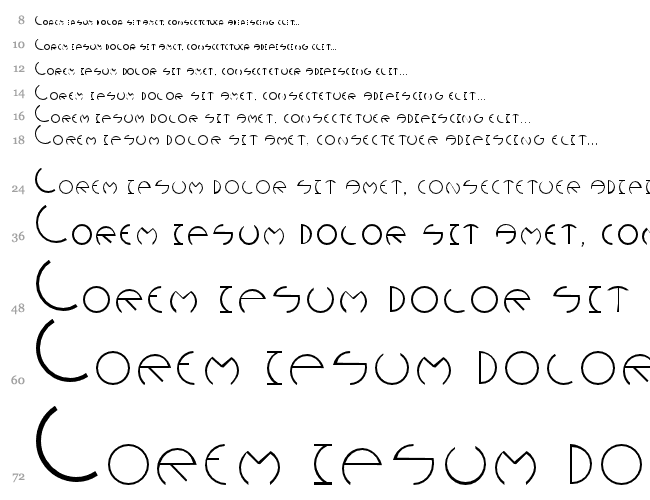 8 Lorem ipsum dolor sit amet, consectetuer adipiscing elit...
10 Lorem ipsum dolor sit amet, consectetuer adipiscing elit...
12 Lorem ipsum dolor sit amet, consectetuer adipiscing elit...
14 Lorem ipsum dolor sit amet, consectetuer adipiscing elit...
16 Lorem ipsum dolor sit amet, consectetuer adipiscing elit...
18 Lorem ipsum dolor sit amet, consectetuer adipiscing elit...
24 Lorem ipsum dolor sit amet, consectetuer adipi
36 Lorem ipsum dolor sit amet, con
48 Lorem ipsum dolor sit
60 Lorem ipsum dolor
72 Lorem ipsum do